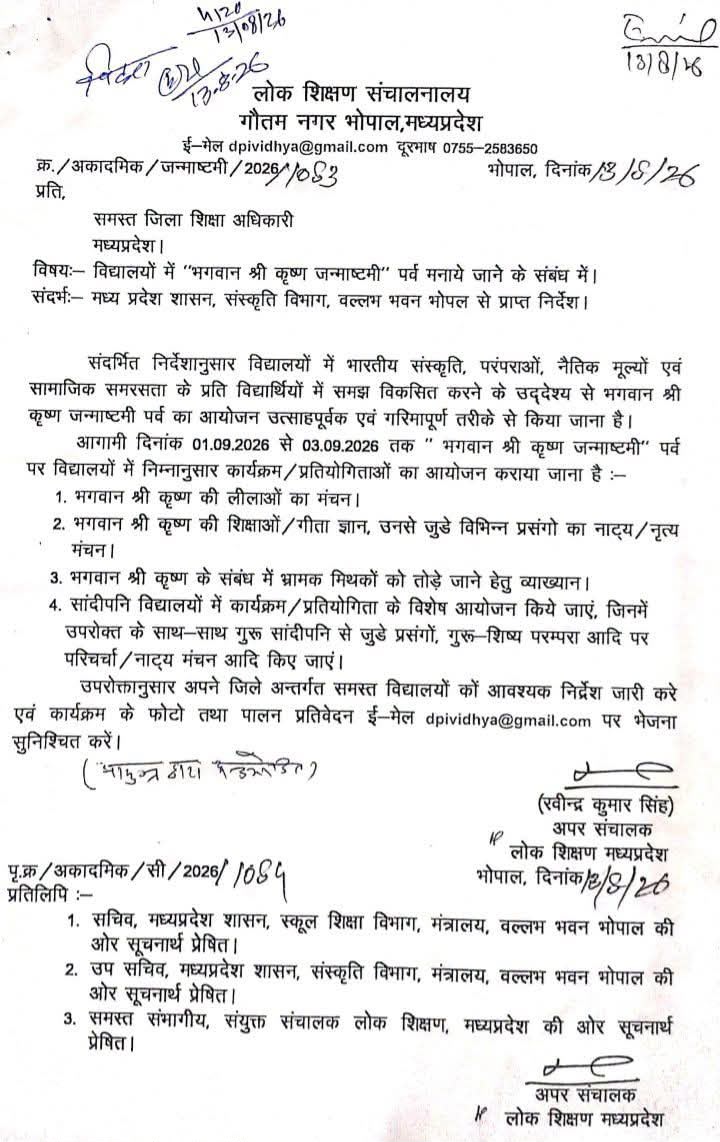 4120
13/08/26
13.8.26
13/8/26
लोक शिक्षण संचालनालय
गौतम नगर भोपाल,मध्यप्रदेश
ई–मेल dpividhya@gmail.com दूरभाष 0755–2583650
क्र./अकादमिक/जन्माष्टमी/2026/1083
भोपाल, दिनांक 13/8/26
प्रति,
समस्त जिला शिक्षा अधिकारी
मध्यप्रदेश।
विषयः– विद्यालयों में "भगवान श्री कृष्ण जन्माष्टमी" पर्व मनाये जाने के संबंध में।
संदर्भः– मध्य प्रदेश शासन, संस्कृति विभाग, वल्लभ भवन भोपल से प्राप्त निर्देश।
संदर्भित निर्देशानुसार विद्यालयों में भारतीय संस्कृति, परंपराओं, नैतिक मूल्यों एवं
सामाजिक समरसता के प्रति विद्यार्थियों में समझ विकसित करने के उद्देश्य से भगवान श्री
कृष्ण जन्माष्टमी पर्व का आयोजन उत्साहपूर्वक एवं गरिमापूर्ण तरीके से किया जाना है।
आगामी दिनांक 01.09.2026 से 03.09.2026 तक " भगवान श्री कृष्ण जन्माष्टमी" पर्व
पर विद्यालयों में निम्नानुसार कार्यक्रम/प्रतियोगिताओं का आयोजन कराया जाना है :–
1. भगवान श्री कृष्ण की लीलाओं का मंचन।
2. भगवान श्री कृष्ण की शिक्षाओं/गीता ज्ञान, उनसे जुडे विभिन्न प्रसंगो का नाट्य/नृत्य
मंचन।
3. भगवान श्री कृष्ण के संबंध में भ्रामक मिथकों को तोड़े जाने हेतु व्याख्यान।
4. सांदीपनि विद्यालयों में कार्यक्रम/प्रतियोगिता के विशेष आयोजन किये जाएं, जिनमें
उपरोक्त के साथ–साथ गुरू सांदीपनि से जुडे प्रसंगों, गुरू–शिष्य परम्परा आदि पर
परिचर्चा/नाट्य मंचन आदि किए जाएं।
उपरोक्तानुसार अपने जिले अन्तर्गत समस्त विद्यालयों कों आवश्यक निर्द्रेश जारी करे
एवं कार्यक्रम के फोटो तथा पालन प्रतिवेदन ई–मेल dpividhya@gmail.com पर भेजना
सुनिश्चित करें।
(आयुक्त द्वारा अनुमोदित)
(रवीन्द्र कुमार सिंह)
अपर संचालक
लोक शिक्षण मध्यप्रदेश
पृ.क्र/अकादमिक/सी/2026/1084
भोपाल, दिनांक 13/8/26
प्रतिलिपि :–
1. सचिव, मध्यप्रदेश शासन, स्कूल शिक्षा विभाग, मंत्रालय, वल्लभ भवन भोपाल की
ओर सूचनार्थ प्रेषित।
2. उप सचिव, मध्यप्रदेश शासन, संस्कृति विभाग, मंत्रालय, वल्लभ भवन भोपाल की
ओर सूचनार्थ प्रेषित।
3. समस्त संभागीय, संयुक्त संचालक लोक शिक्षण, मध्यप्रदेश की ओर सूचनार्थ
प्रेषित।
अपर संचालक
लोक शिक्षण मध्यप्रदेश